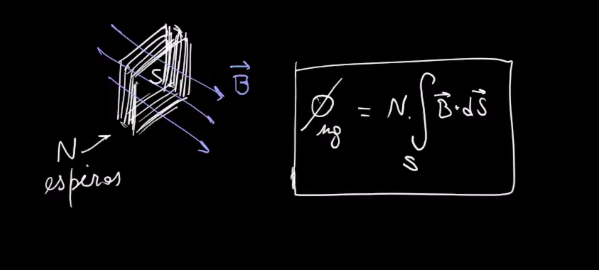 S
B⃗
N
espiras
∅mg = N. ∫S B⃗ · dS⃗